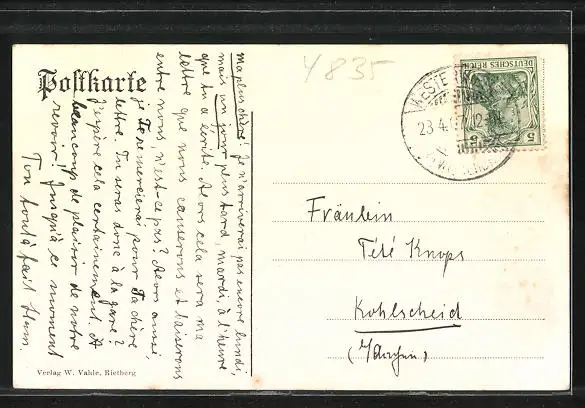 4835
Postkarte
ma plus chère! Je n'arriverai pas encore lundi,
mais un jour plus tard, mardi, à l'heure
que tu a écrite. Alors cela sera ma
lettre que nous causerons et baiserons
entre nous n'est-ce pas? Alors aussi
je Te remercierai pour Ta chère
lettre. Tu seras donc à la gare?
J'espère cela certainement. A
beaucoup de plaisir de notre
revoir! Jusqu'à ce moment
Ton tout à fait
Fräulein
Tété Knops
Kohlscheid
(b/Aachen)
DEUTSCHES REICH
5 5
23.4. 12-
Verlag W. Vahle, Rietberg